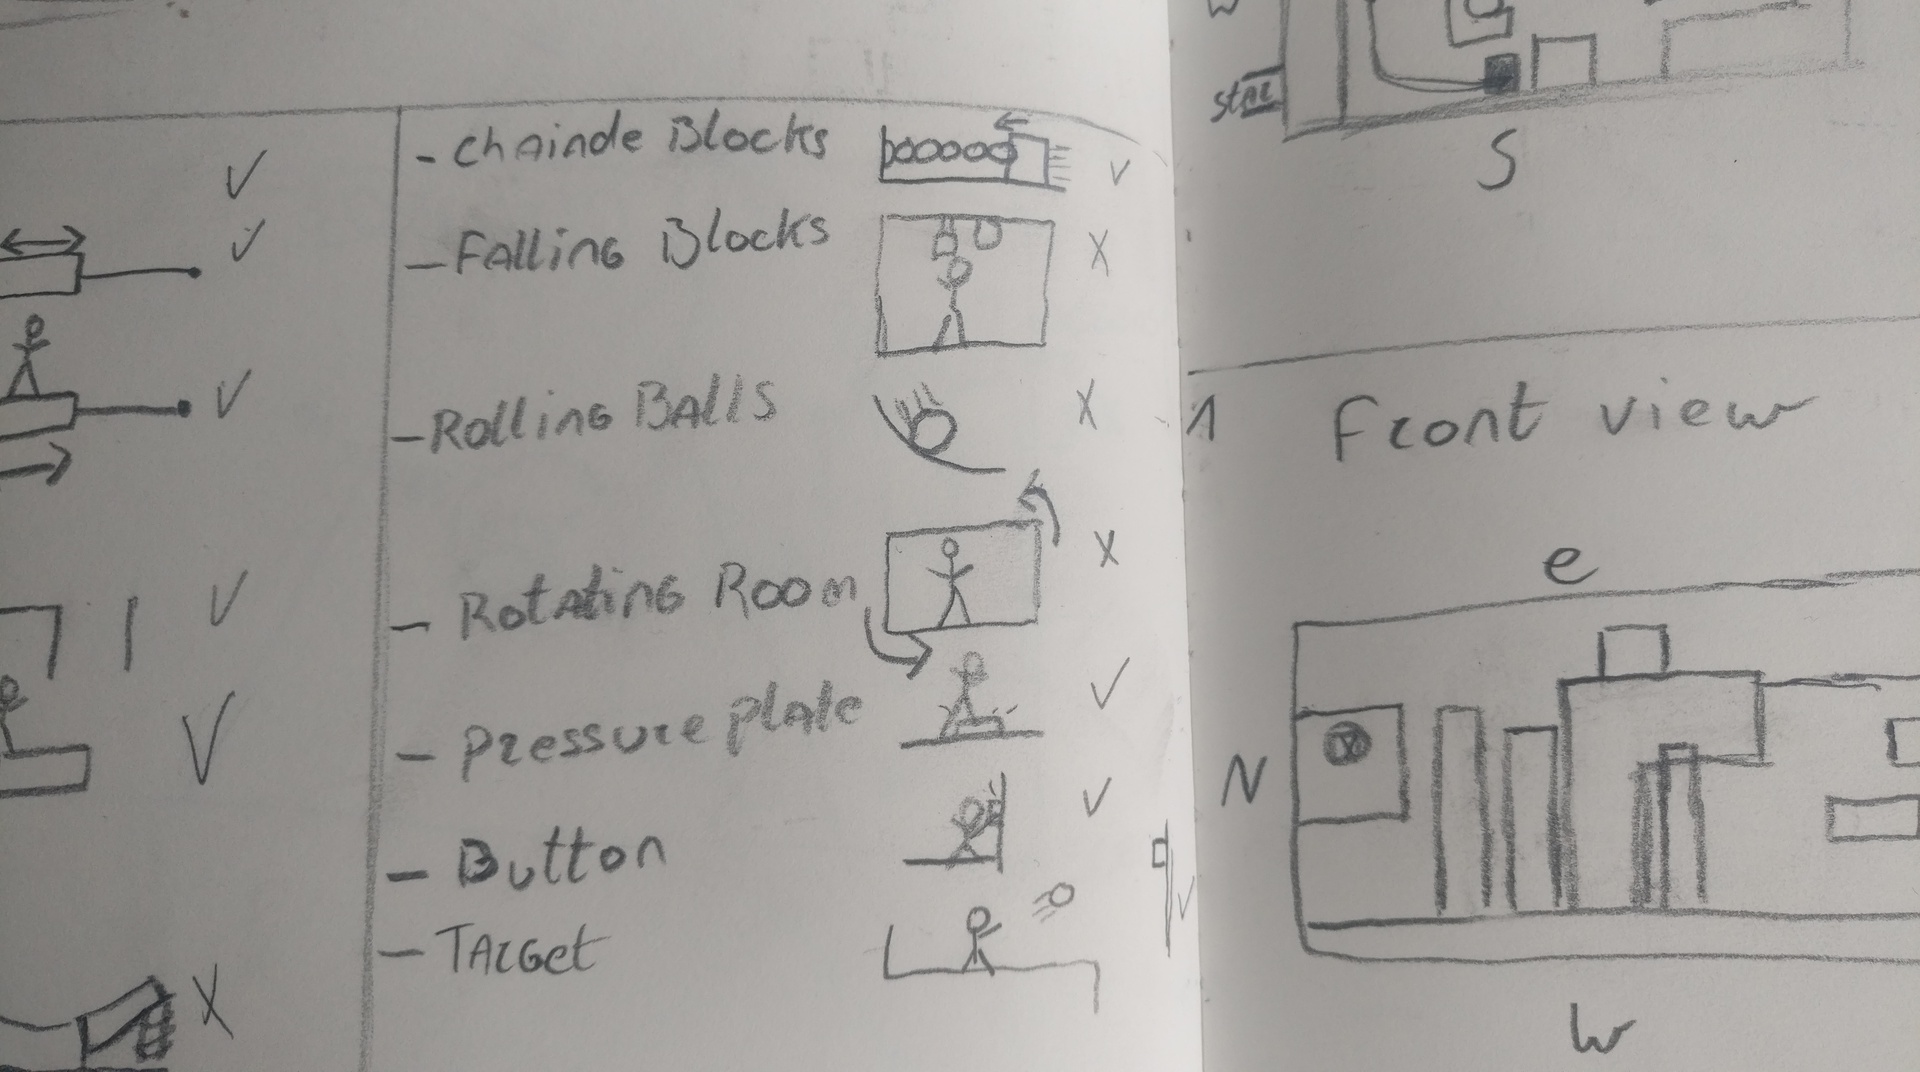 - Chainde Blocks
- Falling Blocks
- Rolling Balls
- Rotating Room
- Pressure plate
- Button
- Target
S
1 Front view
e
N
W